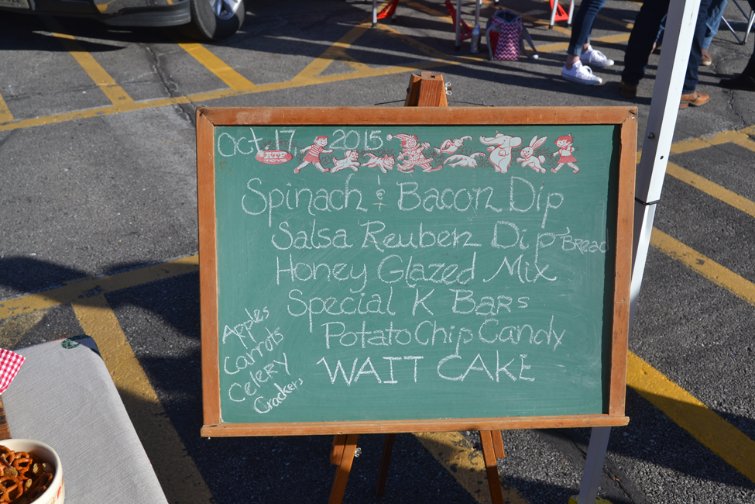 Oct 17, 2015
Spinach & Bacon Dip
Salsa Reuben Dip Bread
Honey Glazed Mix
Special K Bars
Potato Chip Candy
WAIT CAKE
Apples
Carrots
Celery
Crackers